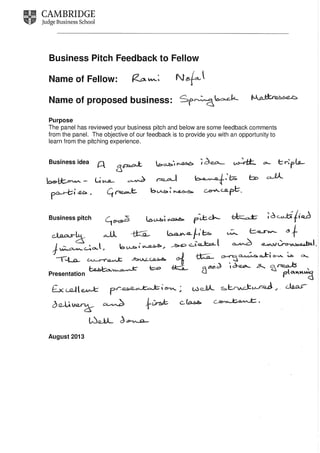 CAMBRIDGE
Judge Business School
Business Pitch Feedback to Fellow
Name of Fellow: Rami Nofal
Name of proposed business: Springback Mattresses
Purpose
The panel has reviewed your business pitch and below are some feedback comments
from the panel. The objective of our feedback is to provide you with an opportunity to
learn from the pitching experience.
Business idea A great business idea with a triple
bottom-line and real benefits to all
parties. Great business concept.
Business pitch Good business pitch that identified
clearly all the benefits in term of
financial, business, societal and environmental.
The current success of the organisation is a
testament to the good idea & great
planning
Presentation
Excellent presentation; well structured, clear
delivery and first class content.
Well done
August 2013